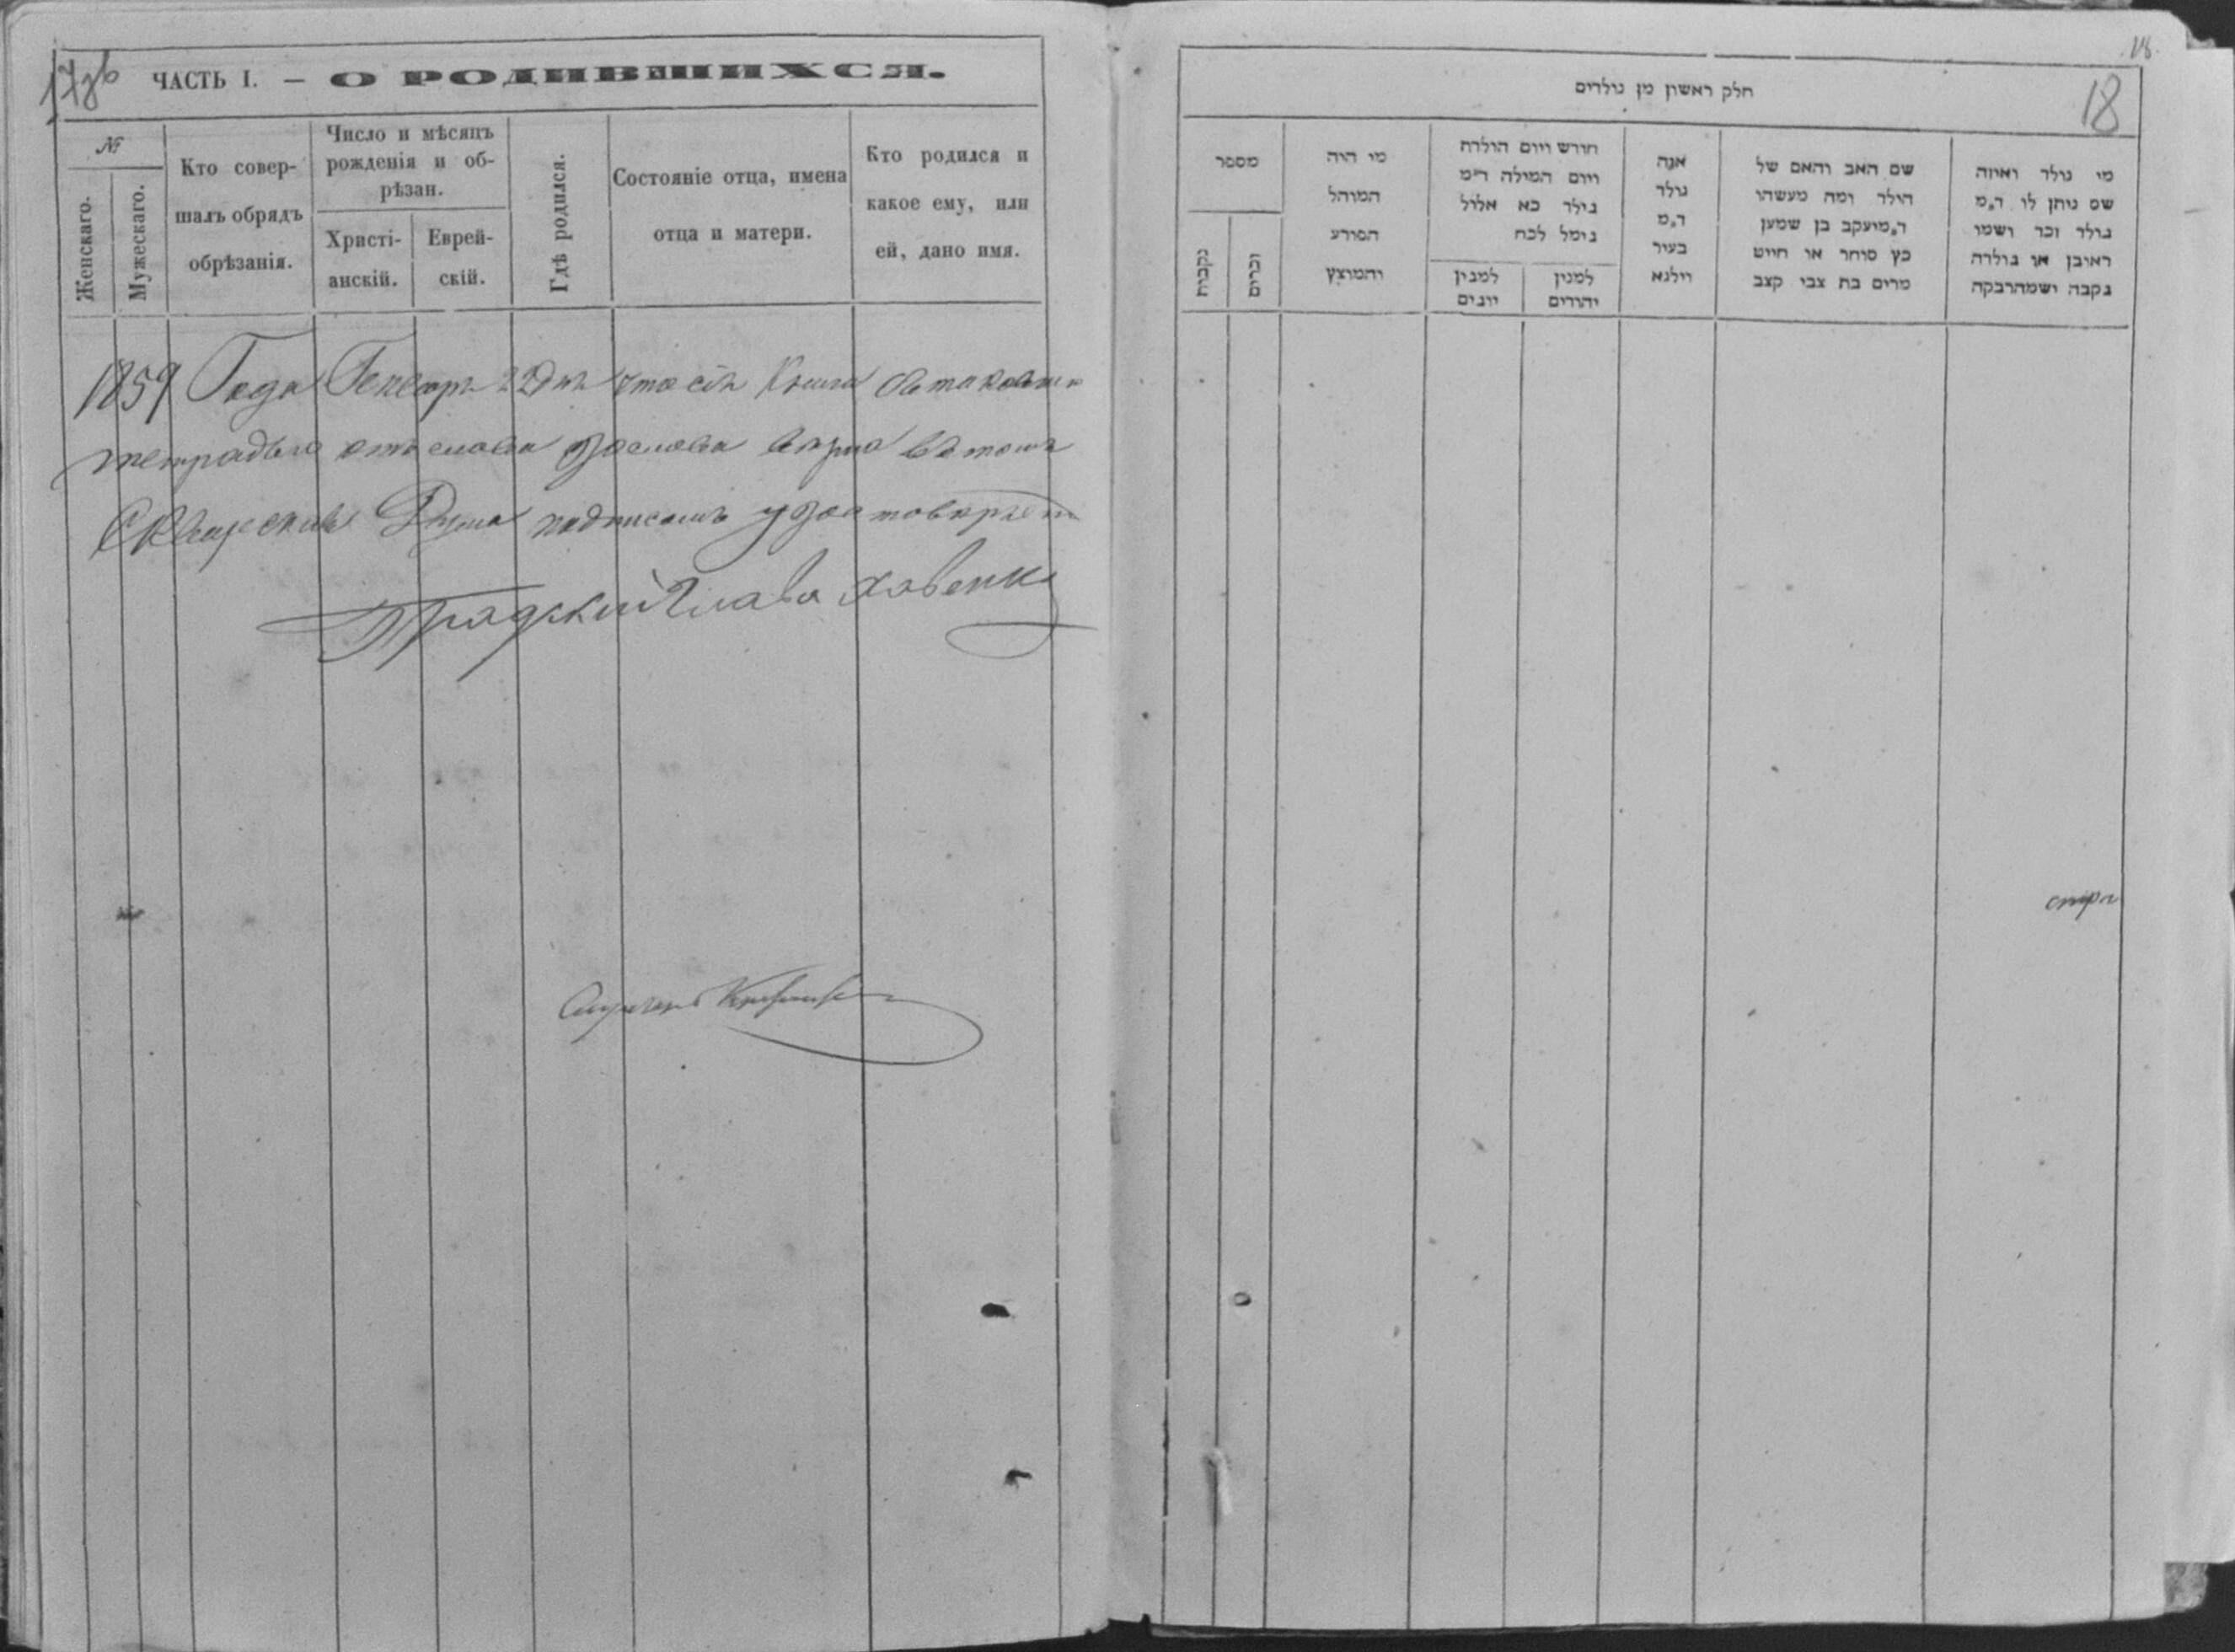 ЧАСТЬ I. — О РОДИВШИХСЯ.
№
Женскаго.
Мужескаго.
Кто совер-
шалъ обрядъ
обрѣзанія.
Число и мѣсяцъ
рожденія и об-
рѣзан.
Христі-
анскій.
Еврей-
скій.
Гдѣ родился.
Состояніе отца, имена
отца и матери.
Кто родился и
какое ему, или
ей, дано имя.
1859 Года Генваря 22 дня что сія Книга съ таковою
тетрадью отъ слова до слова верна въ томъ
Сквирская Дума подписомъ удостоверяетъ
Градский Глава
18
חלק ראשון מן נולדים
18
מספר
נקבות
זכרים
מי היה
המוהל
הפורע
והמוצץ
חורש ויום הולדת
ויום המילה ד״מ
נולד כא אלול
נימל לכח
למנין
יהודים
למנין
יונים
אנה
נולד
ד״מ
בעיר
ווילנא
שם האב והאם של
הילד ומה מעשהו
ד״מ יעקב בן שמען
כץ סוחר או חייט
מרים בת צבי קצב
מי נולד ואיזה
שם ניתן לו ד״מ
נולד זכר ושמו
ראובן או נולדה
נקבה ושמה רבקה